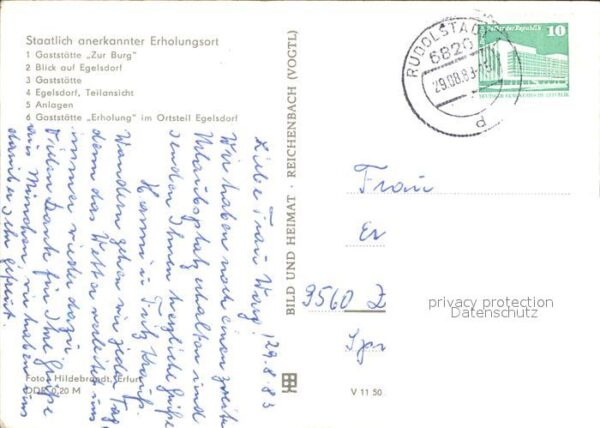 Staatlich anerkannter Erholungsort
1 Gaststätte „Zur Burg"
2 Blick auf Egelsdorf
3 Gaststätte
4 Egelsdorf, Teilansicht
5 Anlagen
6 Gaststätte „Erholung" im Ortsteil Egelsdorf
29.8.83
Liebe Frau
Wir haben noch einen zweiten
Urlaubsplatz erhalten und
senden Ihnen herzliche Grüße
Hanni u. Fritz
Wandern gehen wir jeden Tag
denn das Wetter verleitet uns
immer wieder dazu.
Vielen Dank für Ihre Grüße
aus München, wir haben uns
darüber sehr gefreut.
Foto: Hildebrandt, Erfurt
DDR 0,20 M
BILD UND HEIMAT · REICHENBACH (VOGTL)
V 11 50
RUDOLSTADT
6820
29.08.83
d
Palast der Republik
10
DEUTSCHE DEMOKRATISCHE REPUBLIK
Frau
Er
9560 Z
privacy protection
Datenschutz